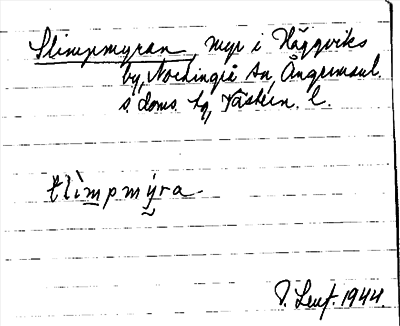 Slimpmyran, myr i Häggviks
by, Nordingrå sn, Ångermanl.
s. doms. hg, Västern. l.
tlìmpmýra.
1944.